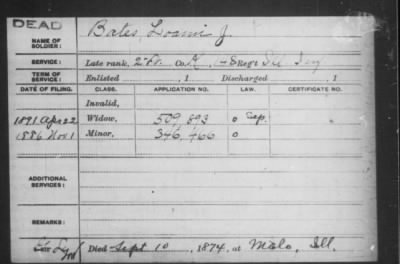 DEAD
NAME OF SOLDIER: Bates, Loami J.
SERVICE: Late rank, Co. K, Reg't
TERM OF SERVICE: Enlisted , 1 Discharged , 1
DATE OF FILING. CLASS. APPLICATION NO. LAW. CERTIFICATE NO.
Invalid,
1891 Apr 22 Widow, 509,893 o Sep.
1886 Nov 1 Minor, 346,466 o
ADDITIONAL SERVICES:
REMARKS:
Died Sept 10, 1874, at Ill.